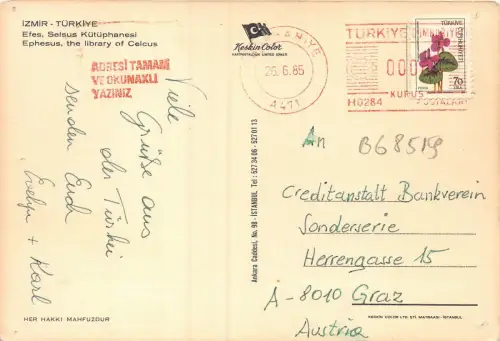 İZMİR - TÜRKİYE
Efes, Selsus Kütüphanesi
Ephesus, the library of Celcus
ADRESİ TAMAM
VE OKUNAKLI
YAZINIZ
Viele
Grüße aus
der Türkei
senden Euch
Evelyn + Karl
HER HAKKI MAHFUZDUR
Keskin Color
Ankara Caddesi, No. 98 - İSTANBUL Tel: 527 34 06 - 527 01 13
26.6.85
A471
TÜRKİYE
000
KURUŞ
H0284
TÜRKİYE
CUMHURİYETİ
70
LİRA
An B68519
Creditanstalt Bankverein
Sonderserie
Herrengasse 15
A-8010 Graz
Austria
KESKİN COLOR LTD. ŞTİ. MATBAASI - İSTANBUL